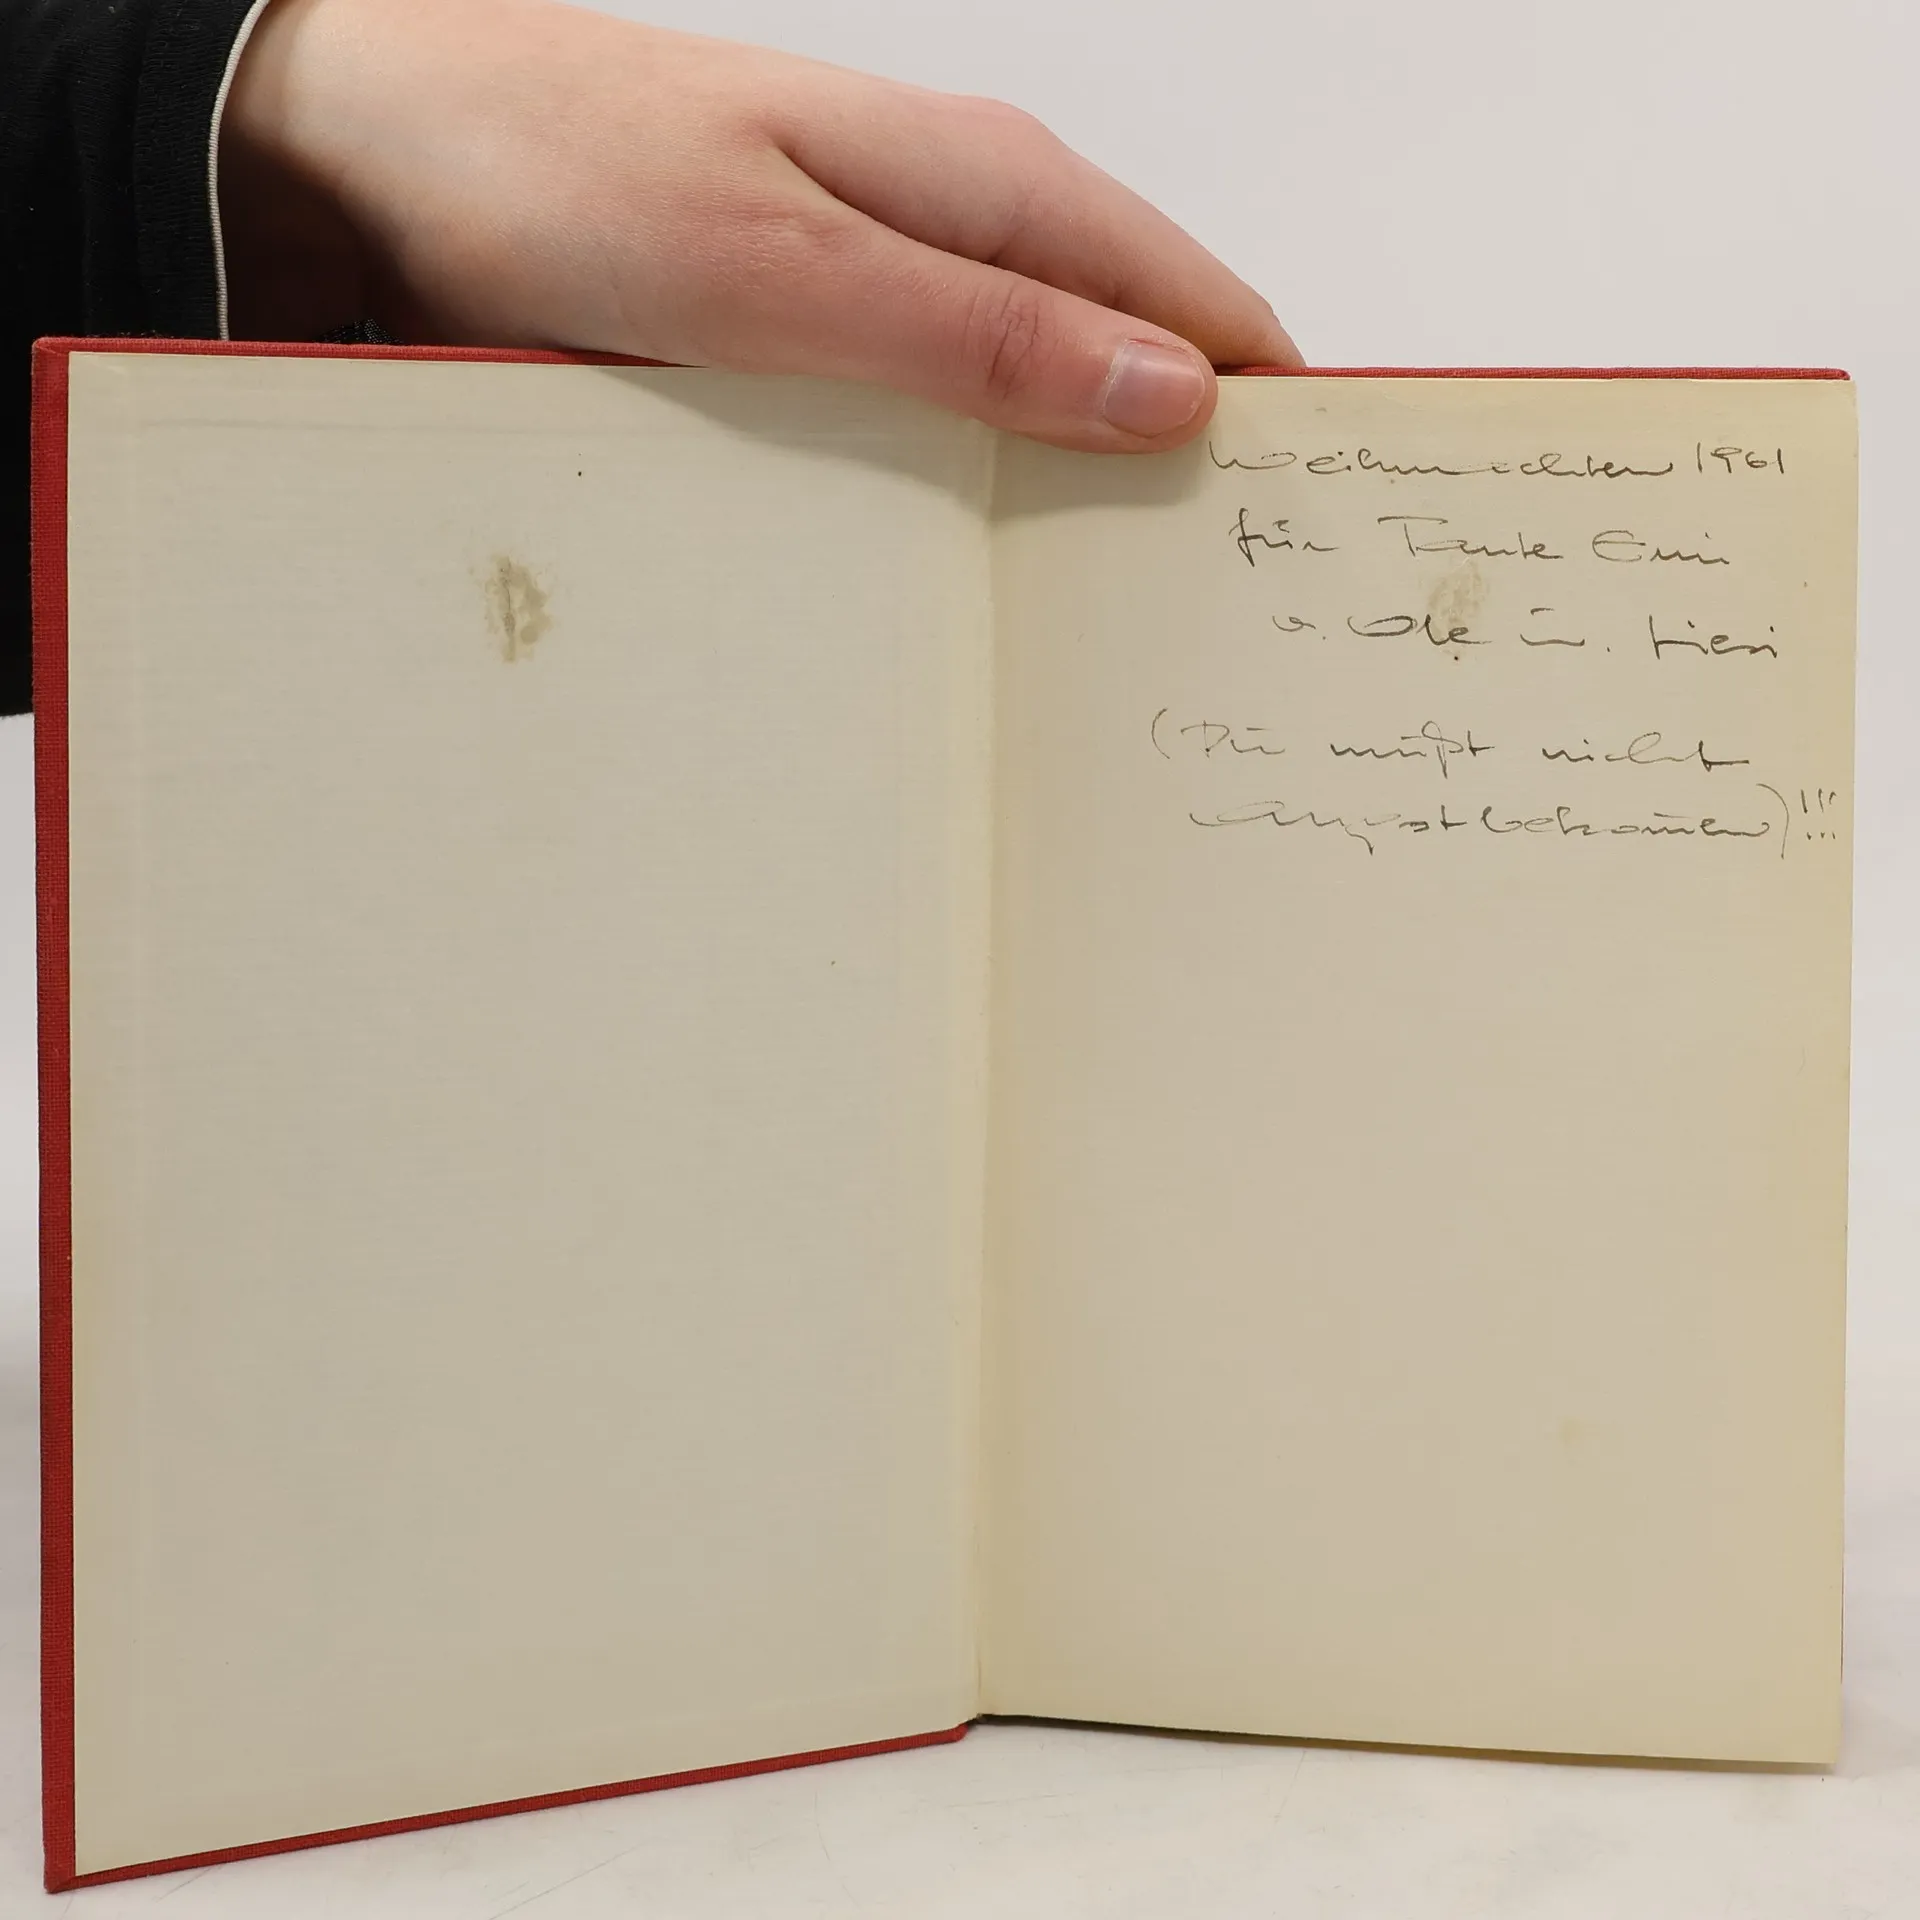 Weihnachten 1961
für Tante Emi
v. Ole u. Liesi
(Du mußt nicht
Angst bekom̅en)!!!